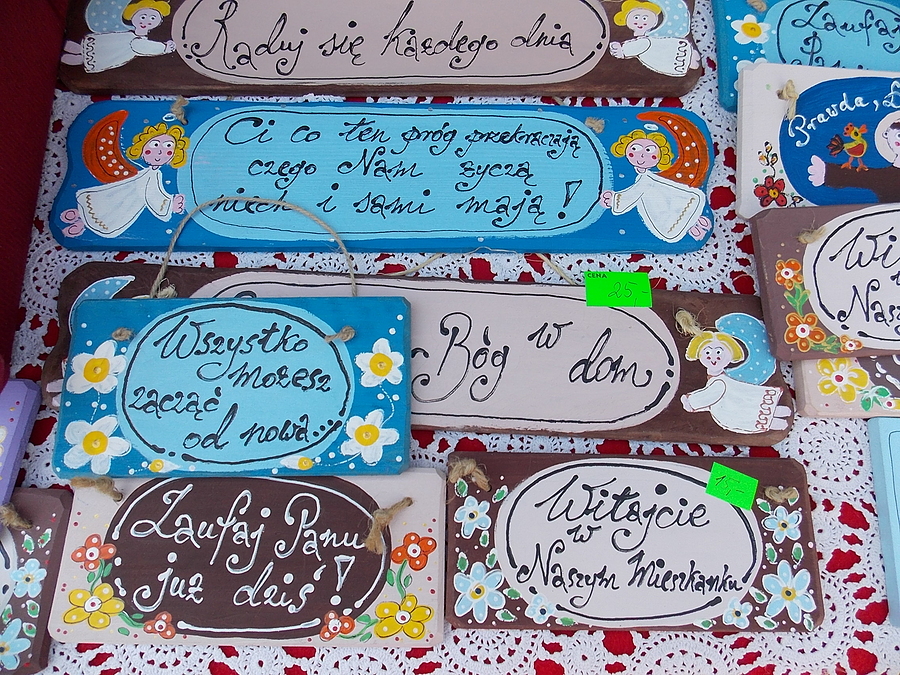 Raduj się każdego dnia
Zaufaj
Ci co ten próg przekraczają
czego Nam życzą
niech i sami mają!
Prawda,
CENA
25,-
Bóg w dom
Wszystko
możesz
zacząć
od nowa...
Zaufaj Panu
już dziś!
Witajcie
w
Naszym Mieszkanku